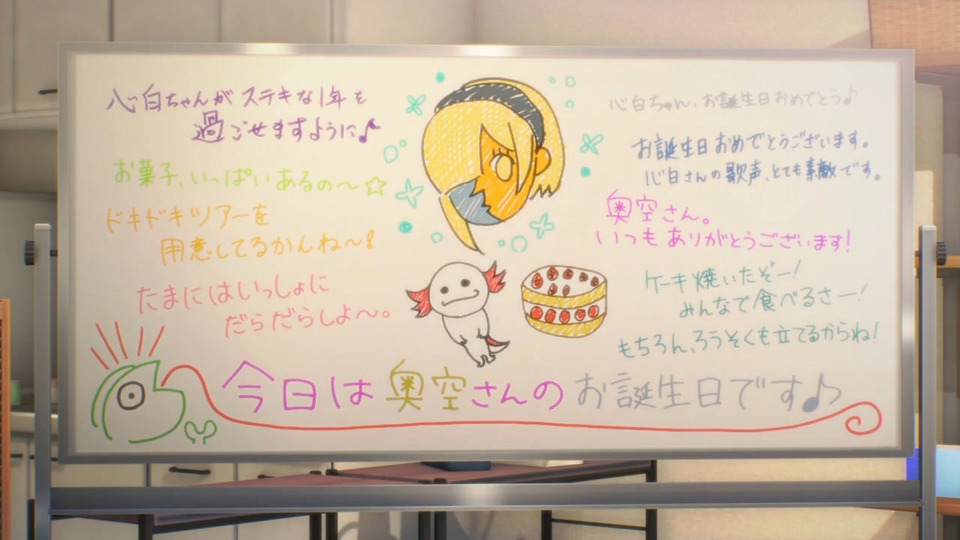 心白ちゃんがステキな1年を
過ごせますように♪
お菓子、いっぱいあるの〜☆
ドキドキツアーを
用意してるかんね〜!
たまにはいっしょに
だらだらしよ〜。
心白ちゃん、お誕生日おめでとう♪
お誕生日おめでとうございます。
心白さんの歌声、とても素敵です。
奥空さん。
いつもありがとうございます!
ケーキ焼いたぞー!
みんなで食べるさー!
もちろん、ろうそくも立てるからね!
今日は奥空さんのお誕生日です♪